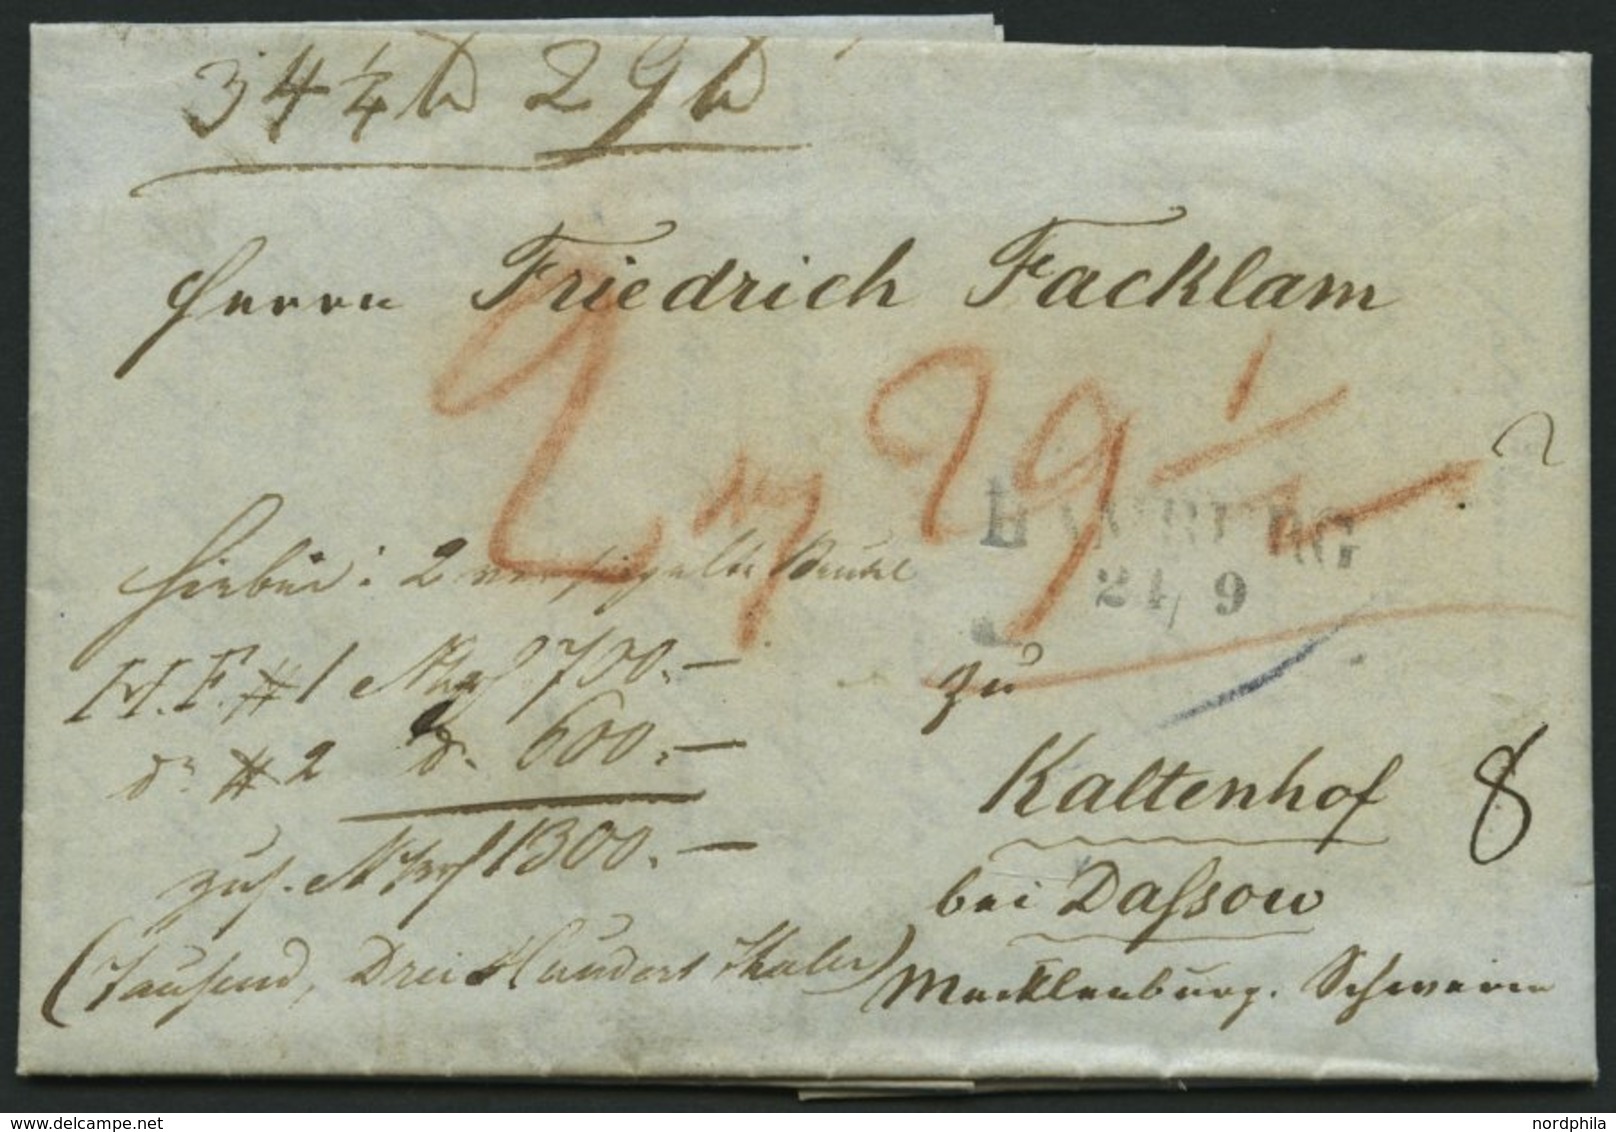 34 1/4 ℔ 29 ℔
Herrn Friedrich Facklam
2 29 1/2
HAMBURG
24/9
Hierbei: 2 versiegelte Beutel
F. #1 700.—
do #2 do 600.—
zus. 1300.—
(Tausend, Drei Hundert Thaler)
zu
Kaltenhof
8
bei Daſsow
Mecklenburg. Schwerin
nordphila